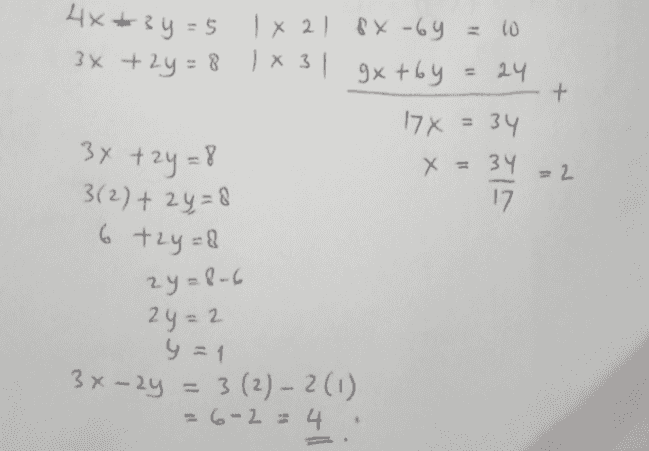 4x - 3y = 5 | x 2 | 8x - 6y = 10
3x + 2y = 8 | x 3 | 9x + 6y = 24
+
17x = 34
x = 34/17 = 2
3x + 2y = 8
3(2) + 2y = 8
6 + 2y = 8
2y = 8 - 6
2y = 2
y = 1
3x - 2y = 3(2) - 2(1)
= 6 - 2 = 4.